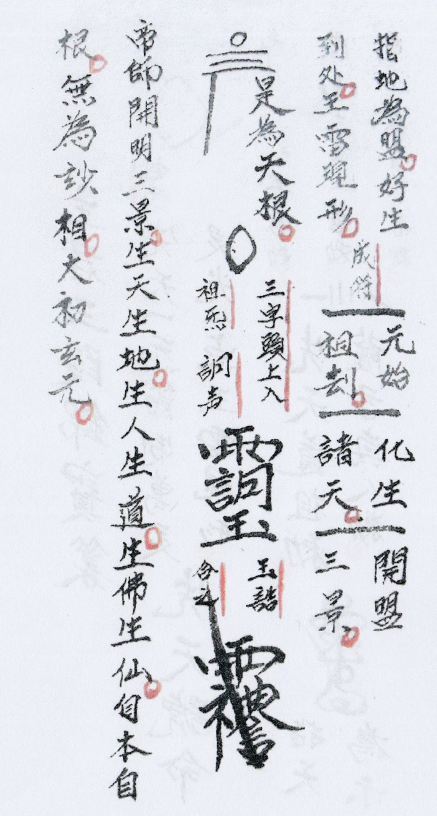 指地為盟好生
到处王雷現形
成符
元始
祖刦
化生
諸天
開盟
三景
是為天根
三字頭上入
祖炁
詞声
玉誥
合之
帝師開明三景生天生地生人生道生佛生仙自本自
根無為訬相大初玄元